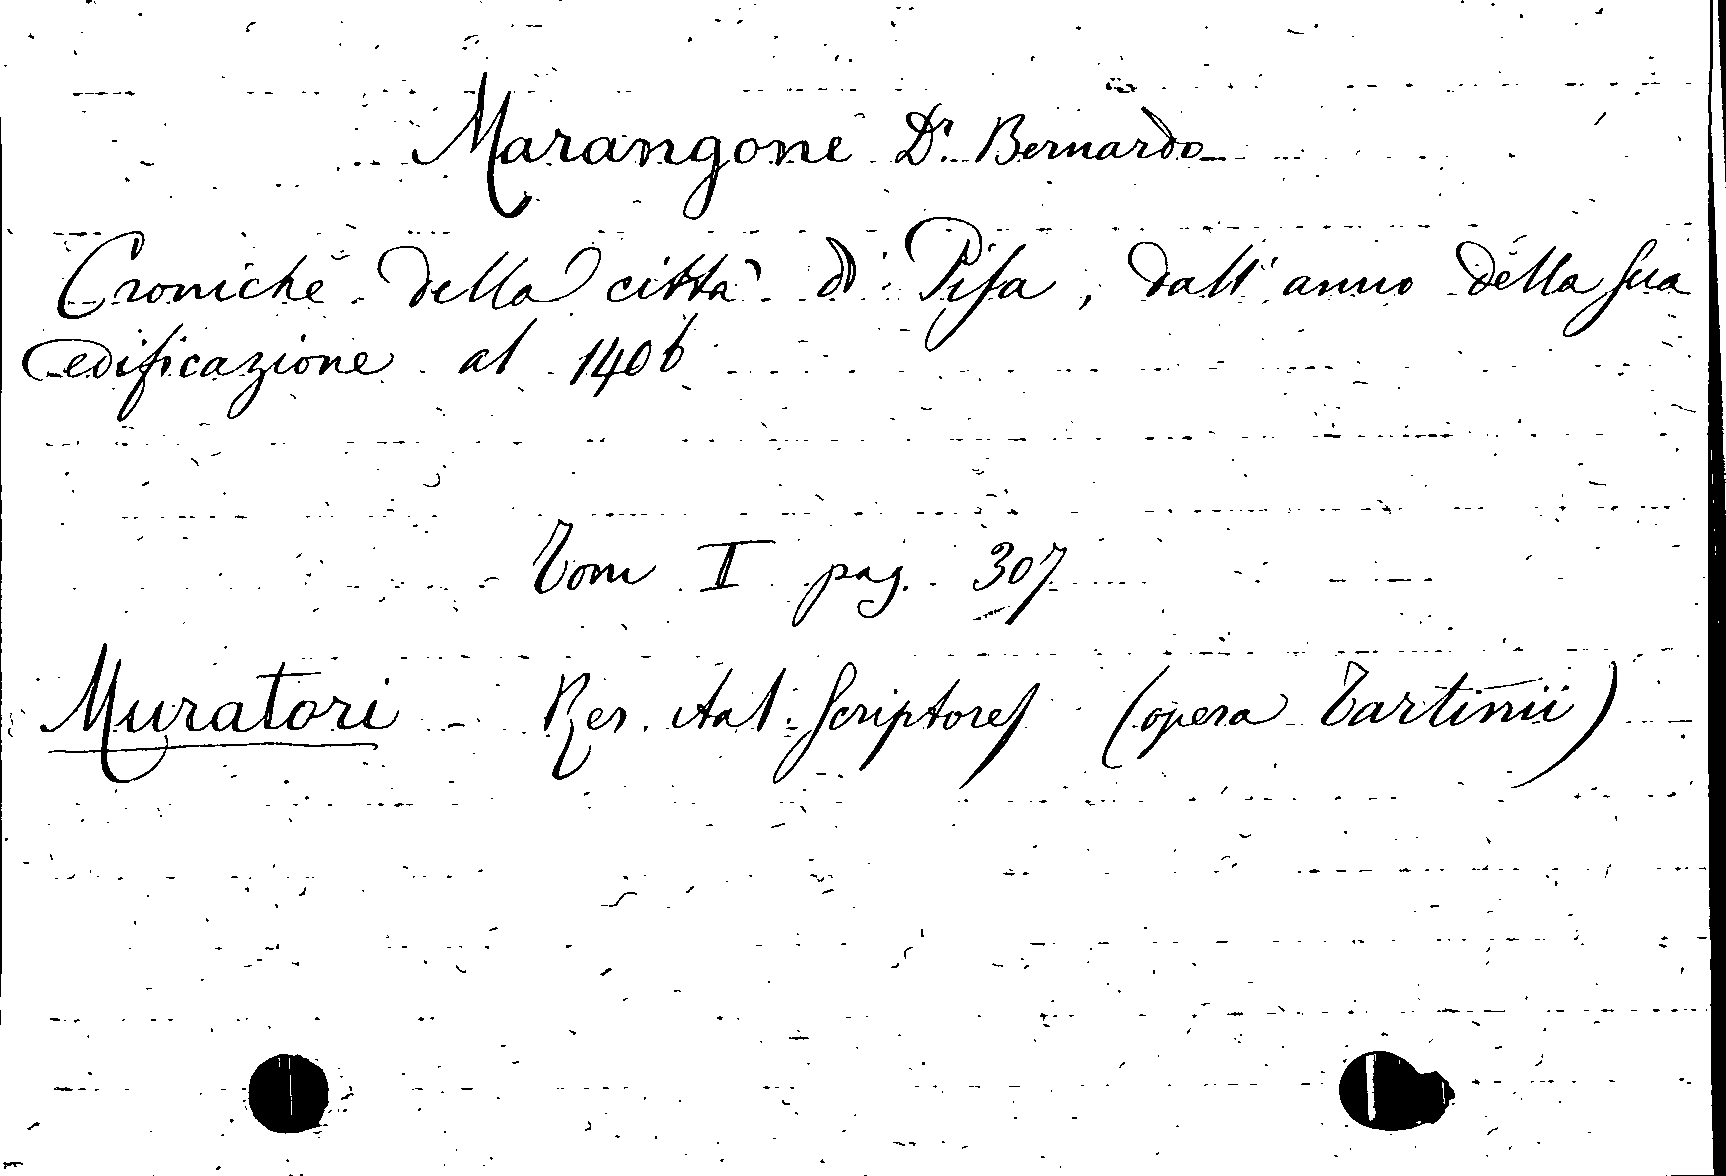 Marangone Dr. Bernardo
Croniche della città di Pisa, dall'anno della sua
edificazione al 1406
Tom I pag. 307
Muratori - Rer. Ital. Scriptores (opera Tartinii)